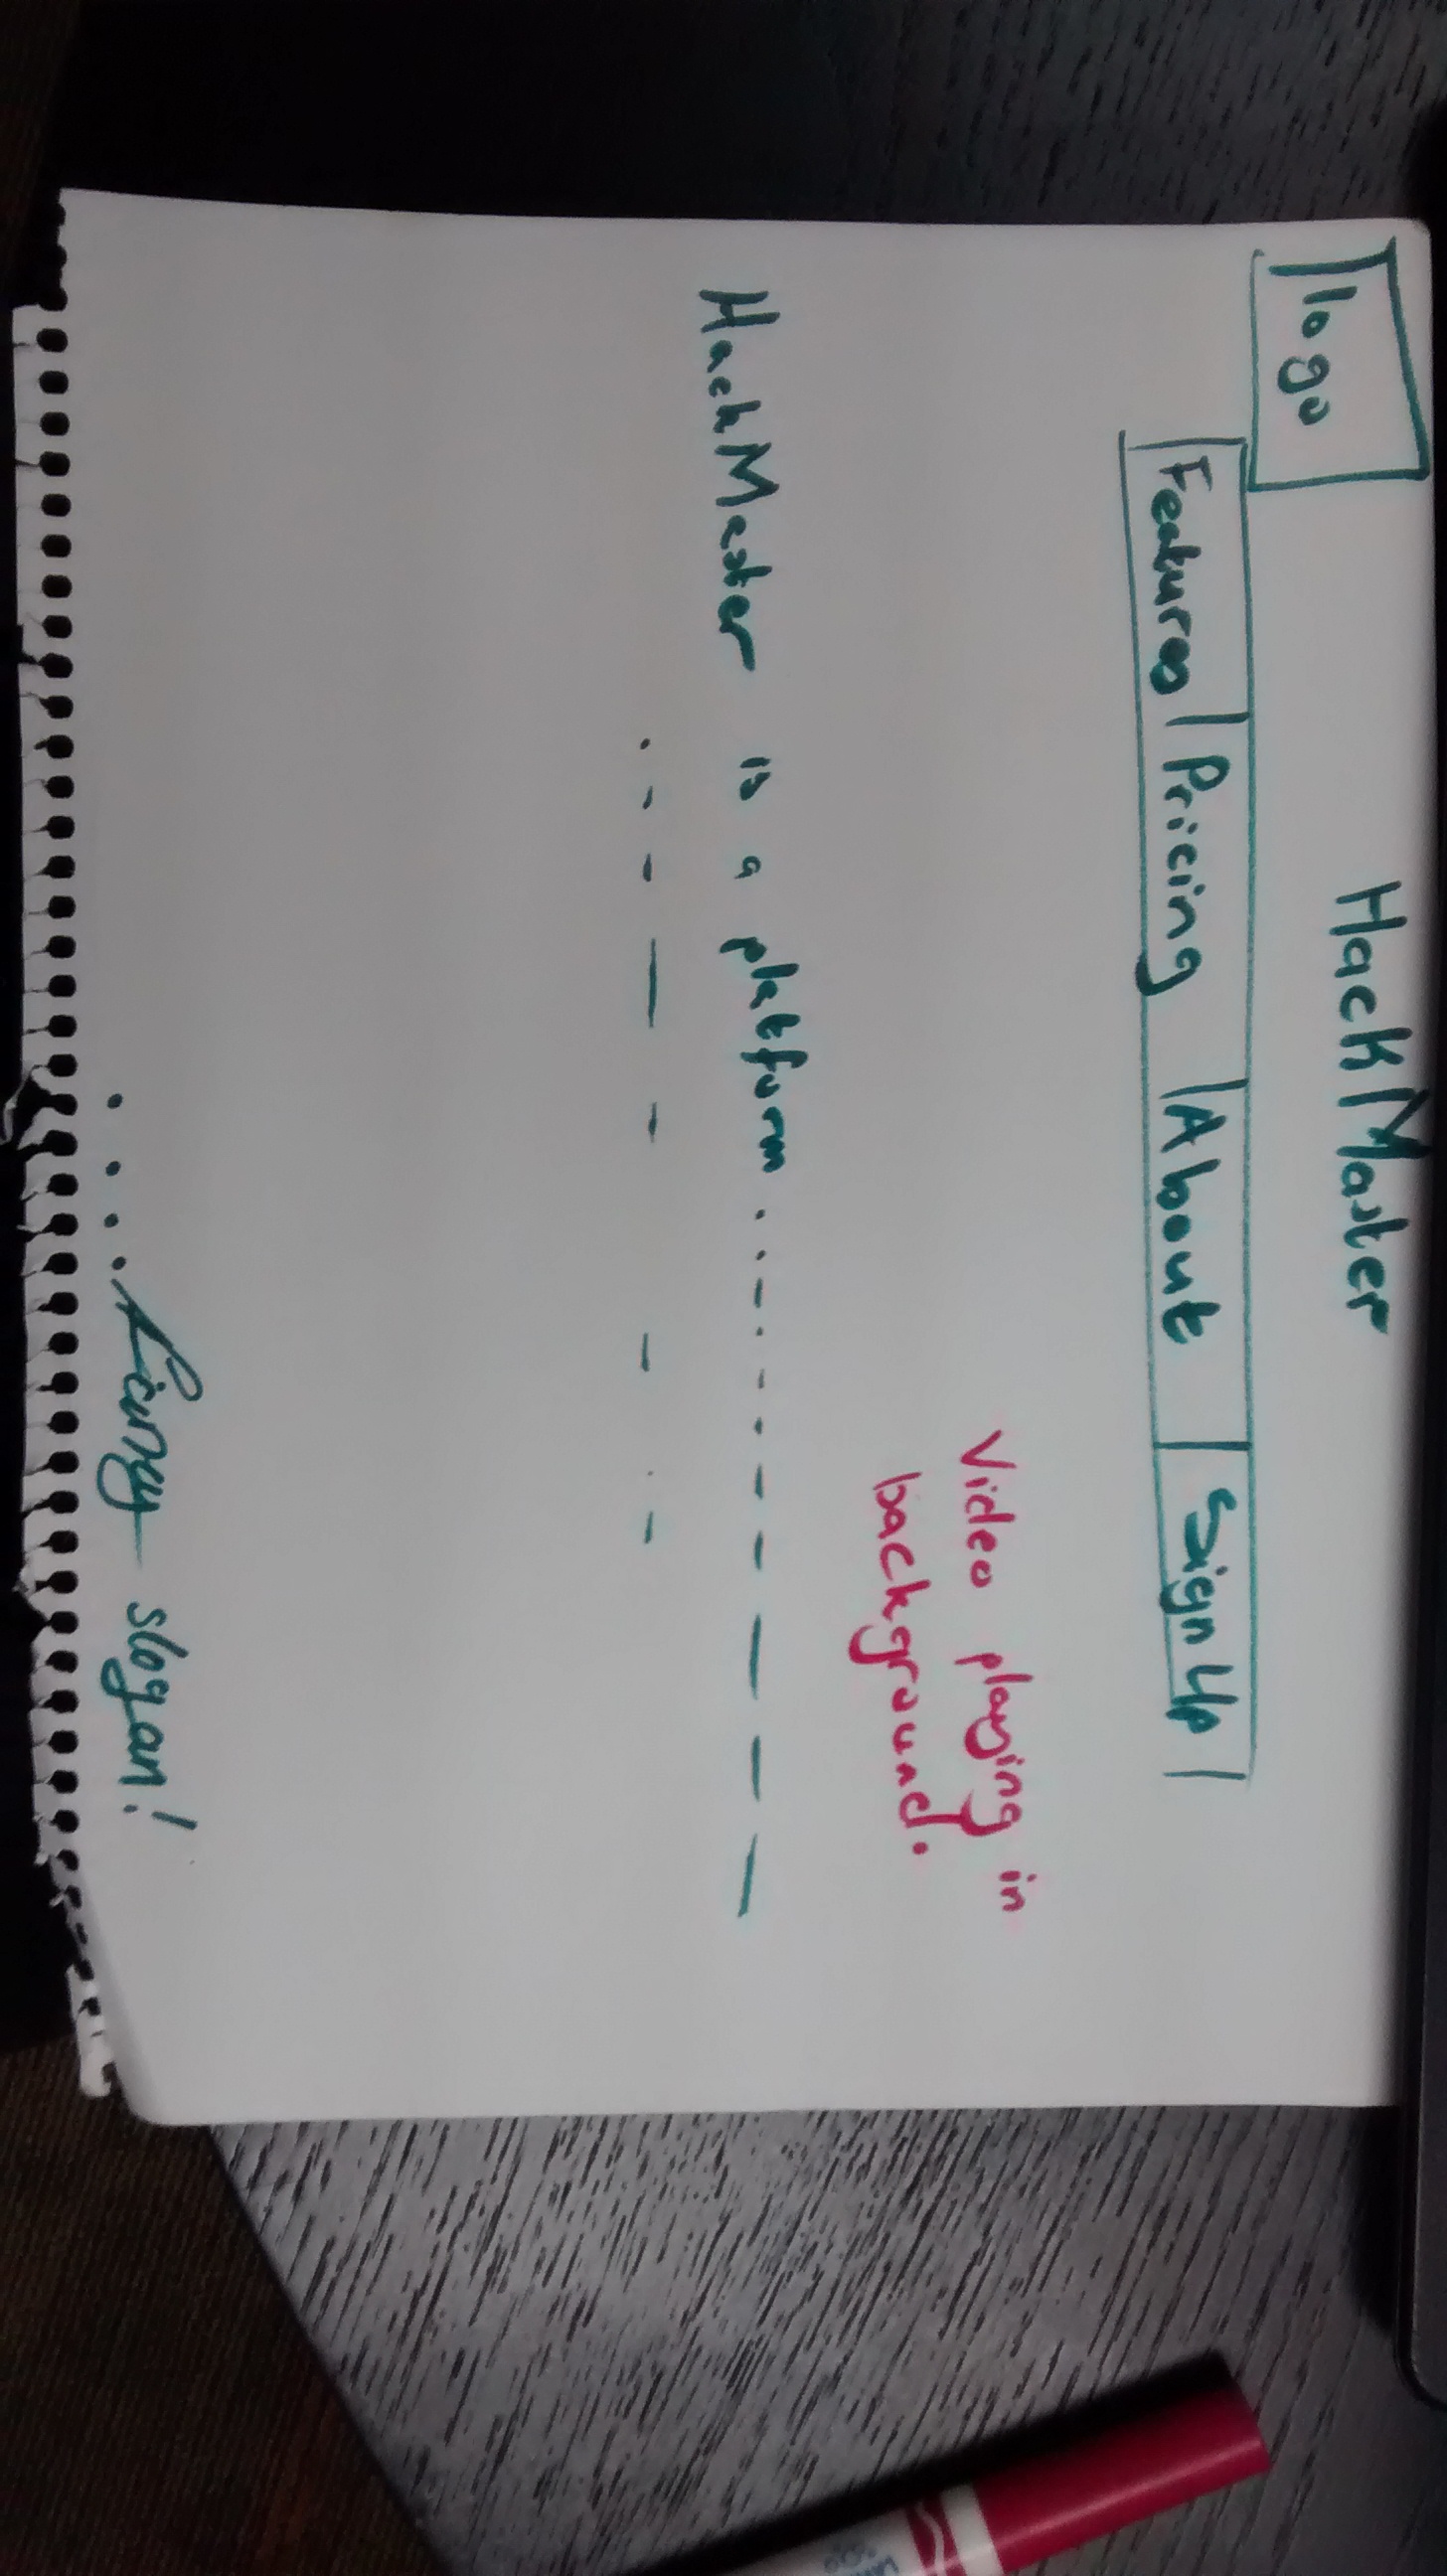 logo
HackMaster
Features Pricing About Sign Up
Video playing in
background.
HackMaster is a platform
slogan!